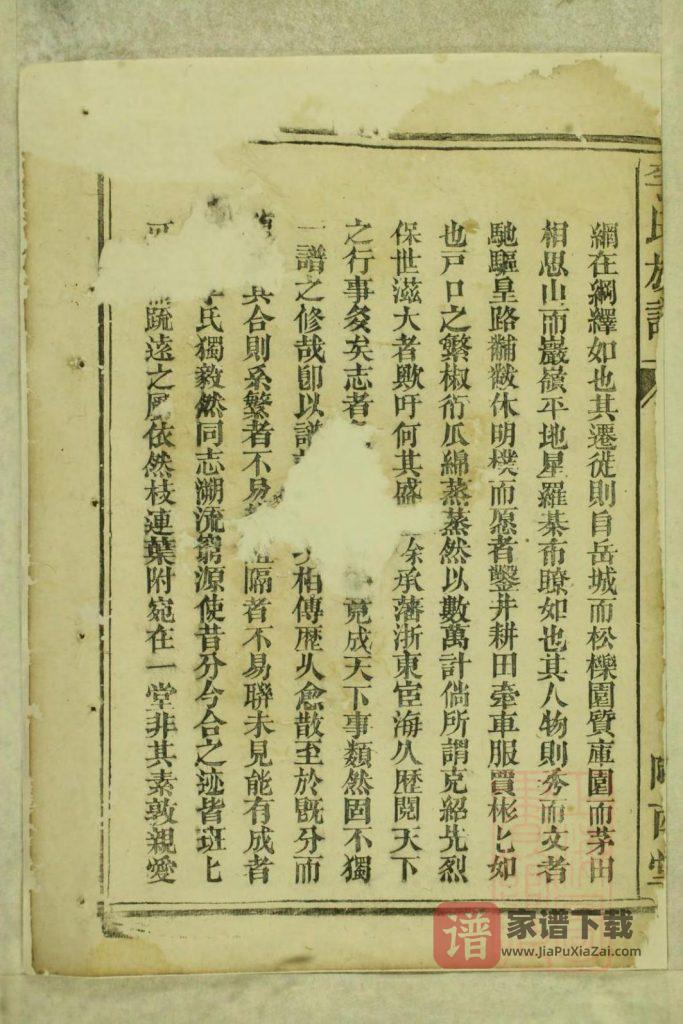 李氏族譜
隴西堂
網在綱繹如也其遷徙則自岳城而松櫟園質庫園而茅田
相思山而巖嶺平地星羅棊布瞭如也其人物則秀而文者
馳驅皇路黼黻休明樸而愿者鑿井耕田牽車服賈彬匕如
也戸口之繁椒衍瓜綿蒸蒸然以數萬計倘所謂克紹先烈
保世滋大者歟吁何其盛 余承藩浙東宦海久歷閱天下
之行事多矣志者 竟成天下事類然固不獨
一譜之修哉卽以譜 相傳歷久愈散至於旣分而
其合則系繁者不易 隔者不易聯未見能有成者
李氏獨毅然同志溯流窮源使昔分今合之迹皆班匕
可 疏遠之 依然枝連葉附宛在一堂非其素敦親愛
谱 家谱下载
www.JiaPuXiaZai.com